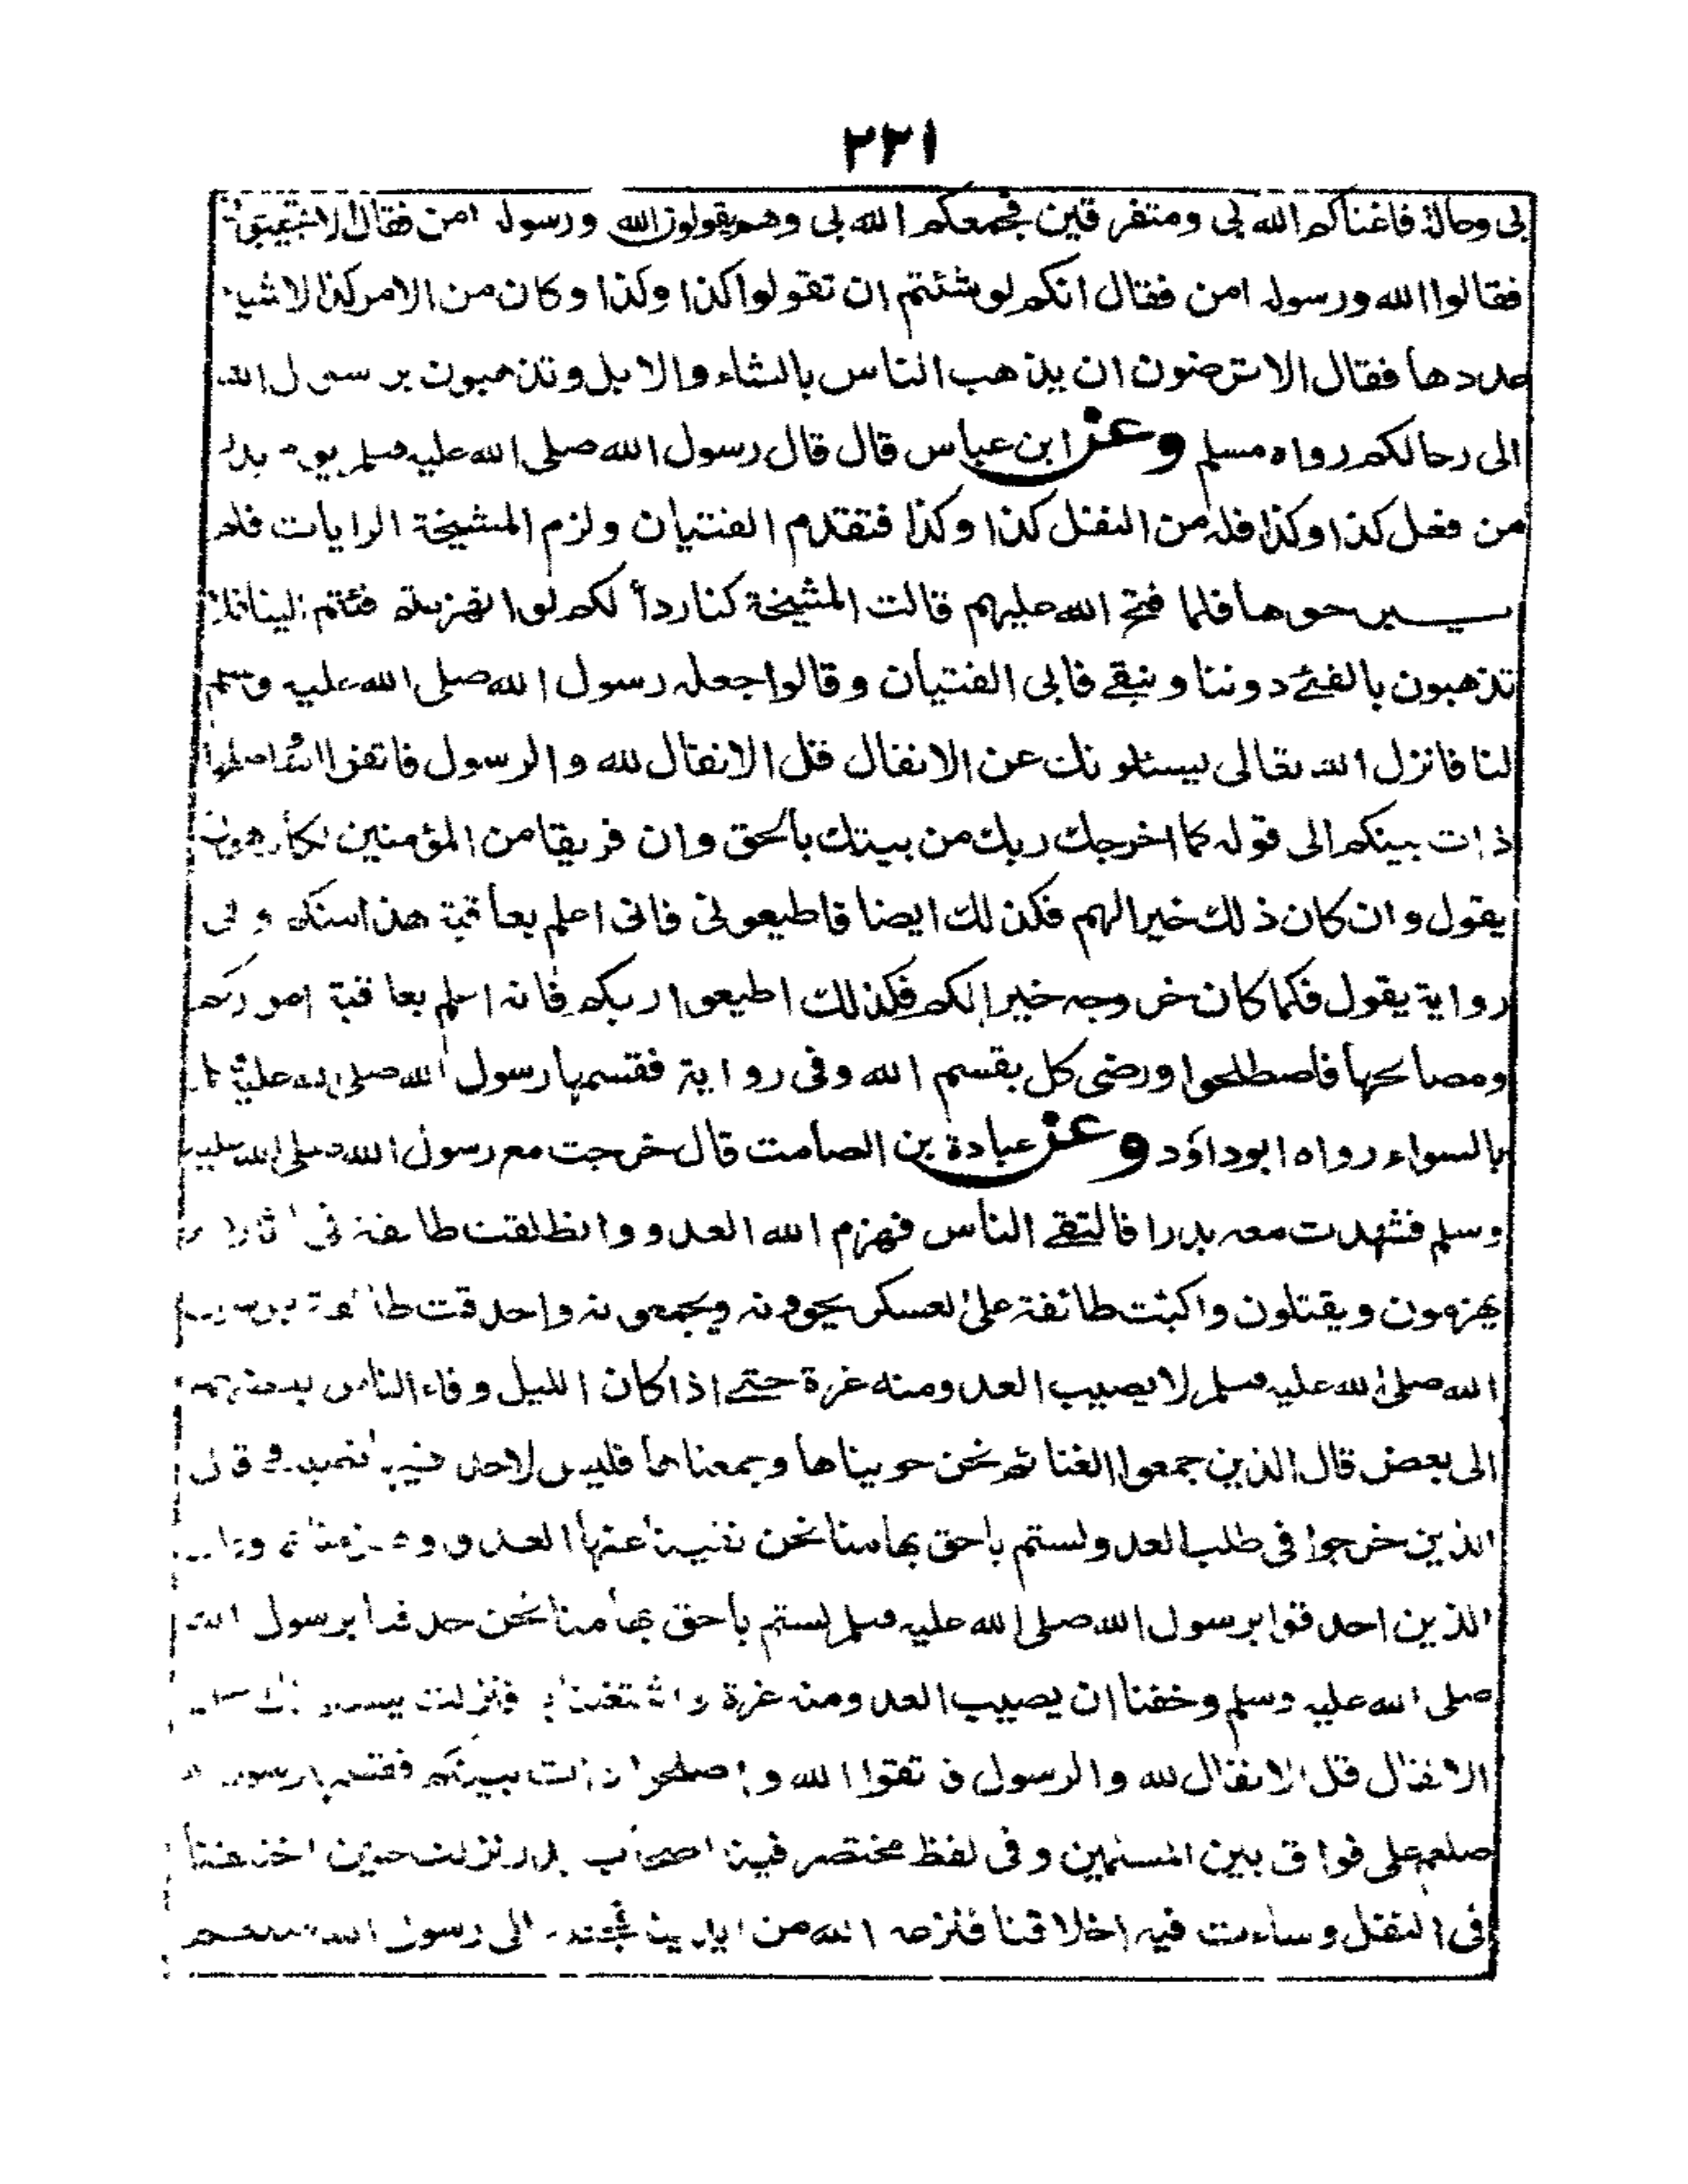 ٢٢١
بى وحالة فاغناكم الله بى ومتفرقين فجمعكم الله بى وهم يقولون الله ورسوله امن فقال لا
فقالوا الله ورسوله امن فقال انكم لو شئتم ان تقولوا كذا وكذا وكان من الامر كذا لاشياء
عددها فقال الا ترضون ان يذهب الناس بالشاء والابل وتذهبون برسول الله
الى رحالكم رواه مسلم وعن ابن عباس قال قال رسول الله صلى الله عليه وسلم يوم بدر
من فعل كذا وكذا فله من النفل كذا وكذا فتقدم الفتيان ولزم المشيخة الرايات فلم
يبرحوها فلما فتح الله عليهم قالت المشيخة كنا ردأ لكم لو انهزمتم فئتم الينا فلا
تذهبون بالفئ دوننا ونبقے فابى الفتيان وقالوا جعله رسول الله صلى الله عليه وسلم
لنا فانزل الله تعالى يسئلونك عن الانفال قل الانفال لله والرسول فاتقوا الله واصلحوا
ذات بينكم الى قوله كما اخرجك ربك من بيتك بالحق وان فريقا من المؤمنين لكارهون
يقول وان كان ذلك خيرا لهم فكذلك ايضا فاطيعونى فانى اعلم بعاقبة هذا منكم وفى
رواية يقول فكما كان خروجه خيرا لكم فكذلك اطيعوا ربكم فانه اعلم بعاقبة اموركم
ومصالحها فاصطلحوا ورضى كل بقسم الله وفى رواية فقسمها رسول الله صلى الله عليه
بالسواء رواه ابوداؤد وعن عبادة بن الصامت قال خرجت مع رسول الله صلى الله عليه
وسلم فشهدت معه بدرا فالتقے الناس فهزم الله العدو وانطلقت طائفة فى
يهزمون ويقتلون واكبت طائفة على العسكر يحوونه ويجمعونه واحدقت طائفة برسول
الله صلى الله عليه وسلم لا يصيب العدو منه غرة حتے اذا كان الليل وفاء الناس بعضهم
الى بعض قال الذين جمعوا الغنائم نحن حويناها وجمعناها فليس لاحد فيها نصيب وقال
الذين خرجوا فى طلب العدو لستم باحق بها منا نحن نفينا عنها العدو وهزمناهم وقال
الذين احدقوا برسول الله صلى الله عليه وسلم لستم باحق بها منا نحن حدقنا برسول الله
صلى الله عليه وسلم وخفنا ان يصيب العدو منه غرة واشتغلنا به فنزلت يسئلونك عن
الانفال قل الانفال لله والرسول فاتقوا الله واصلحوا ذات بينكم فقسمها رسول الله
صلعم على فواق بين المسلمين وفى لفظ مختصر فينا اصحاب بدر نزلت حين اختلفنا
فى النفل وساءت فيه اخلاقنا فنزعه الله من ايدينا فجعله الى رسول الله صلعم